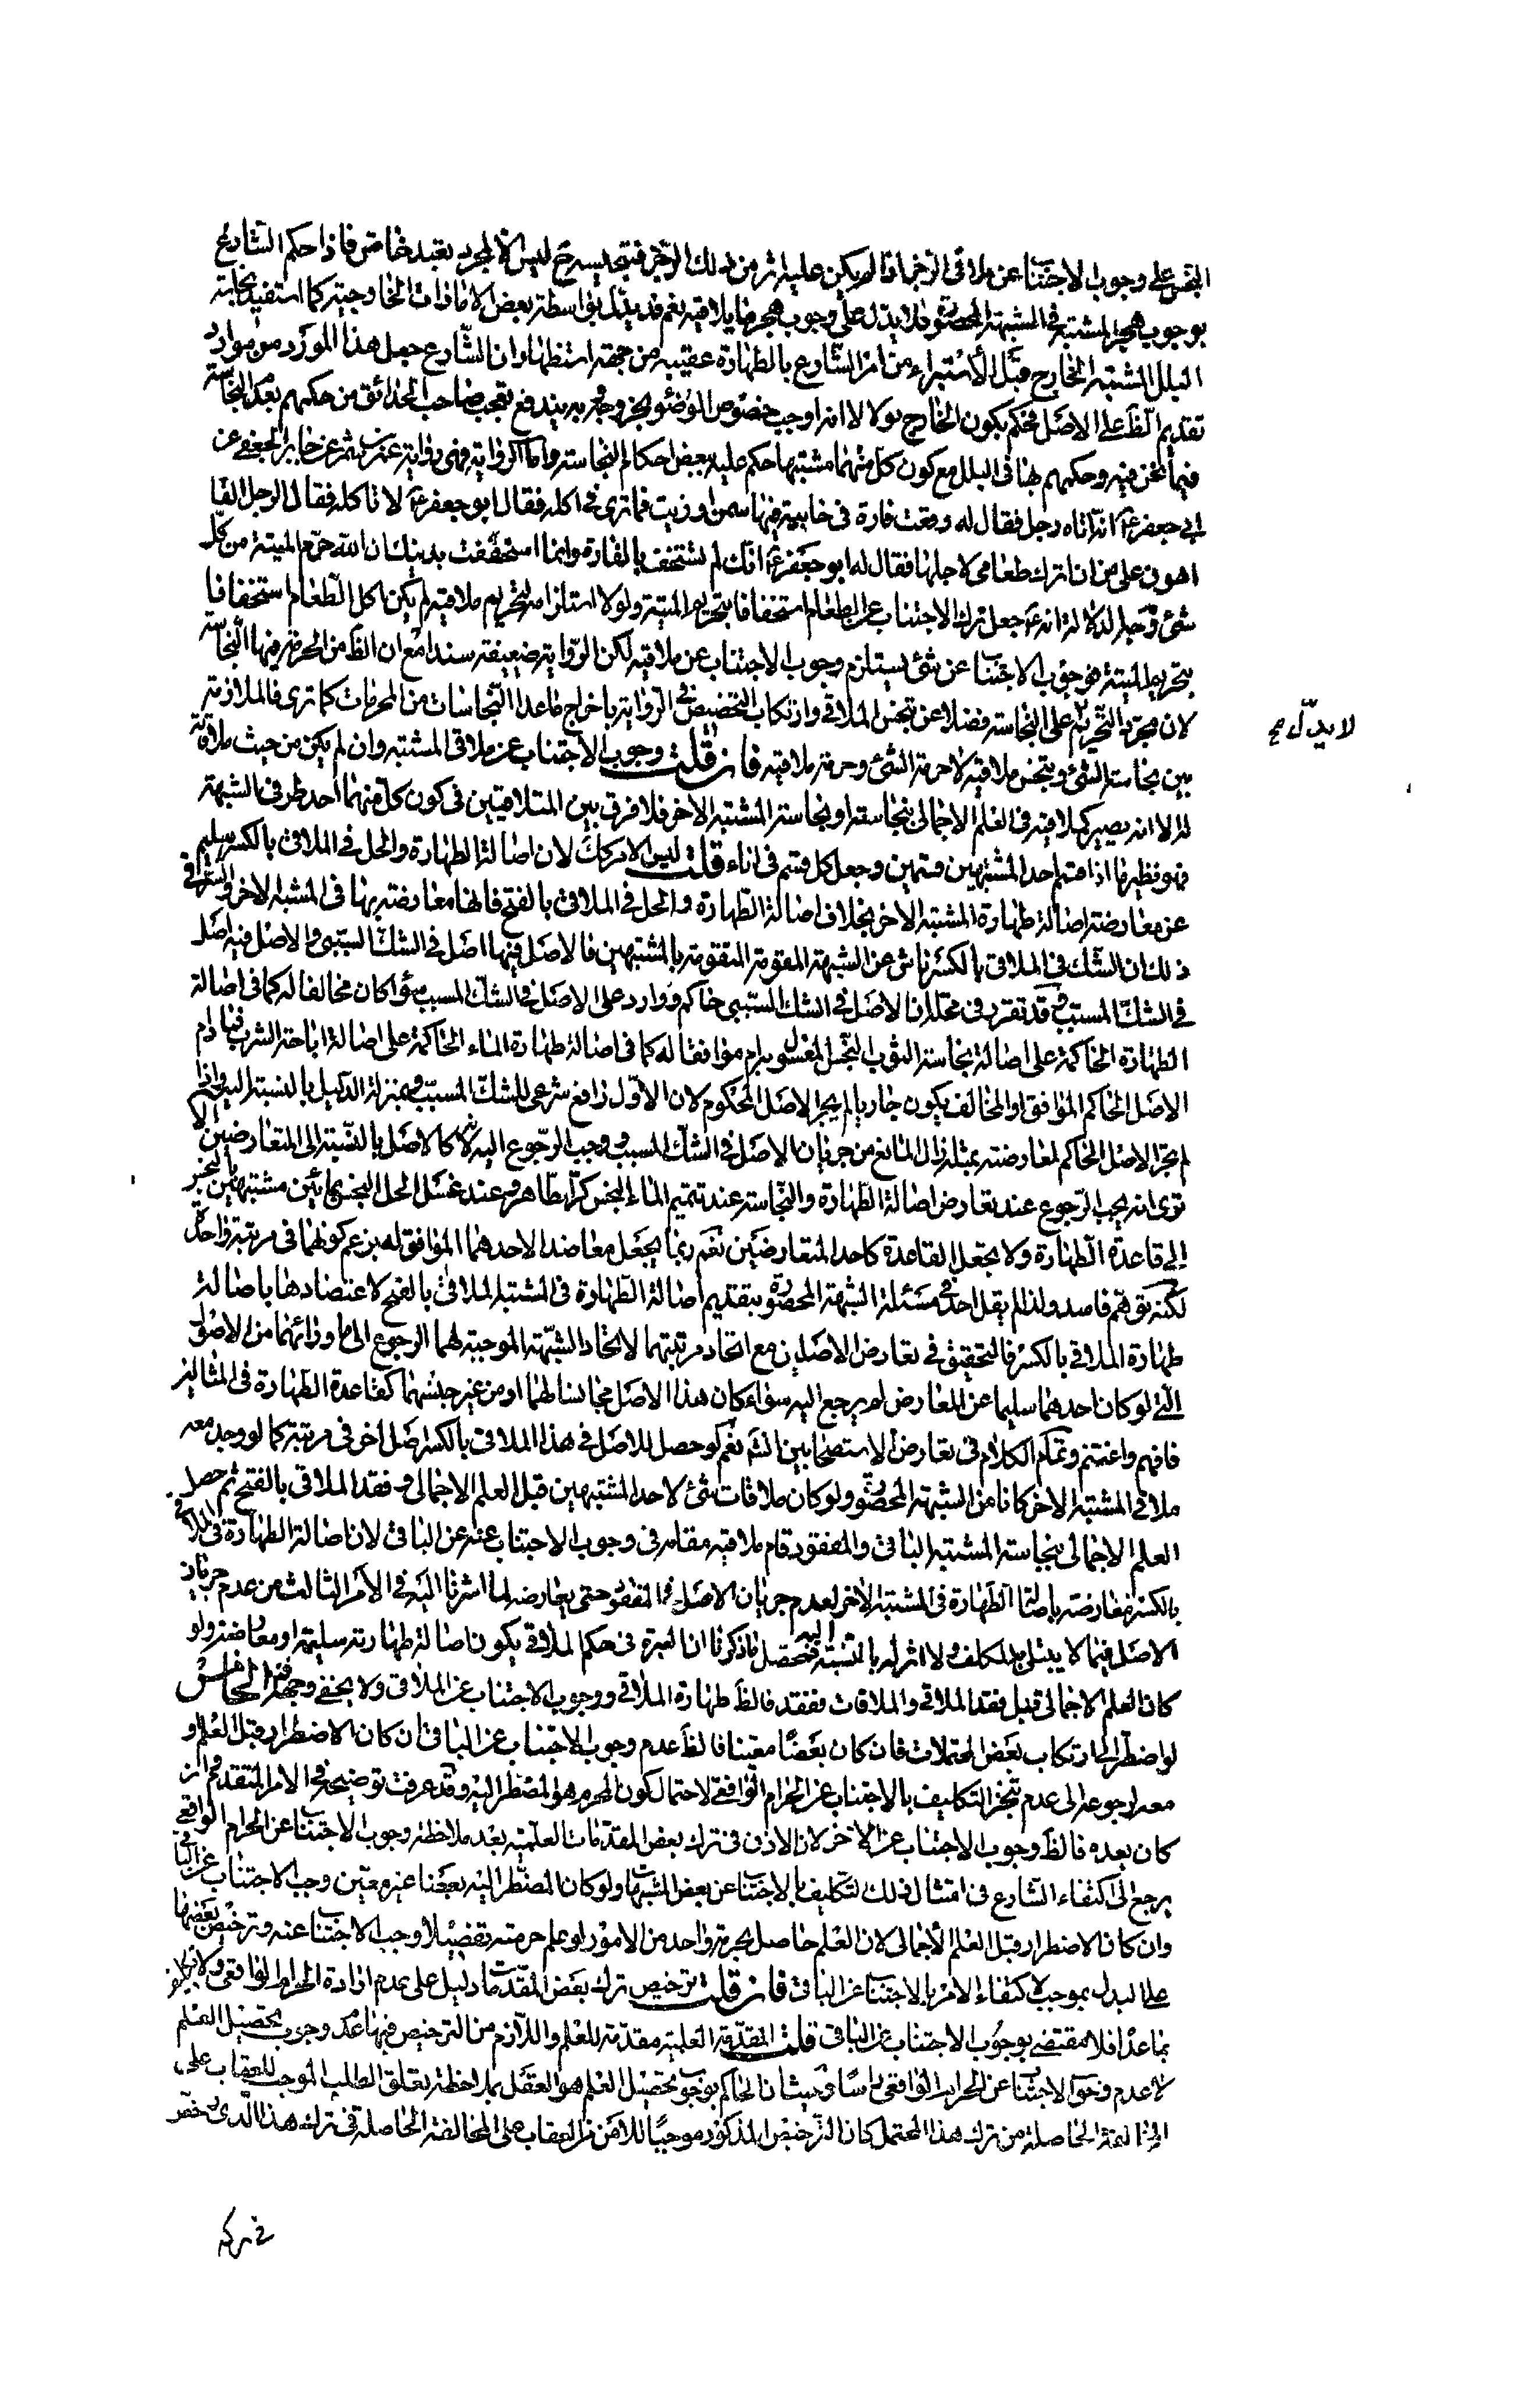 النجس على وجوب الاجتناب عن ملاقى الرخما فالم يكن عليه اثر من ذلك الرجز فتنجيسه ح ليس الا لمجرد تعبد خاص فاذا حكم الشارع
بوجوب هجر المشتبه فى الشبهة المحصورة فلا يدل على وجوب هجر ما يلاقيه نعم قد يدل بواسطة بعض الامارات الخارجية كما استفيد نجاسة
البلل المشتبه الخارج قبل الأستبراء من امر الشارع بالطهارة عقيبه من جهة استظهار ان الشارع جعل هذا المورد من موارد
تقديم الظ على الاصل فحكم بكون الخارج بولا لا انه اوجب خصوص الوضوء بخروجه وبه يندفع تعجب صاحب الحدائق من حكمهم بعدم النجاسة
فيما نحن فيه وحكمهم بها فى البلل مع كون كل منهما مشتبها حكم عليه ببعض احكام النجاسة واما الرواية فهى رواية عمرو بن شمر عن جابر الجعفى عن
ابى جعفر ع انه اتاه رجل فقال له وقعت فارة فى خابية فيها سمن او زيت فما ترى فى اكله فقال ابو جعفر ع لا تاكله فقال الرجل الفارة
اهون على من ان اترك طعامى لاجلها فقال له ابو جعفر ع انك لم تستخف بالفارة وانما استخففت بدينك ان الله حرم الميتة من كل
شئ وجه الدلالة انه ع جعل ترك الاجتناب عن الطعام استخفافا بتحريم الميتة ولولا استلزامه لتحريم ملاقيه لم يكن اكل الطعام استخفافا
بتحريم الميتة فوجوب الاجتناب عن شئ يستلزم وجوب الاجتناب عن ملاقيه لكن الرواية ضعيفة سندا مع ان الظ من الحرمة فيها النجاسة
لان مجرد التحريم لا يدل على النجاسة فضلا عن تنجس الملاقى وارتكاب التخصيص فى الرواية باخراج ماعدا النجاسات من المحرمات كما ترى فالملازمة
لا يدل صح
بين نجاسة الشئ وتنجس ملاقيه لا حرمة الشئ وحرمة ملاقيه فان قلت وجوب الاجتناب عن ملاقى المشتبه وان لم يكن من حيث ملاقاته
له الا انه يصير كملاقيه فى العلم الاجمالى بنجاسته او نجاسة المشتبه الاخر فلا فرق بين المتلاقيين فى كون كل منهما احد طرفى الشبهة
فهو نظير ما اذا قسم احد المشتبهين قسمين وجعل كل قسم فى اناء قلت ليس الامر كك لان اصالة الطهارة والحل فى الملاقى بالكسر سليم
عن معارضة اصالة طهارة المشتبه الاخر بخلاف اصالة الطهارة والحل فى الملاقى بالفتح فانها معارضة بها فى المشتبه الاخر والسر فى
ذلك ان الشك فى الملاقى بالكسر ناش عن الشبهة المقومة المتقومة بالمشتبهين فالاصل فيهما اصل فى الشك السببى والاصل فيه اصل
فى الشك المسببى وقد تقرر فى محله ان الاصل فى الشك السببى حاكم ووارد على الاصل فى الشك المسببى سواء كان مخالفا له كما فى اصالة
الطهارة الحاكمة على اصالة نجاسة الثوب النجس المغسول به ام موافقا له كما فى اصالة طهارة الماء الحاكمة على اصالة اباحة الشرب فما دام
الاصل الحاكم الموافق او المخالف يكون جاريا لم يجر الاصل المحكوم لان الاول رافع شرعى للشك المسبب وبمنزلة الدليل بالنسبة اليه واذا
لم يجر الاصل الحاكم لمعارضته بمثله زال المانع من جريان الاصل فى الشك المسبب ووجب الرجوع اليه لانه كالاصل بالنسبة الى المتعارضين الا
ترى انه يجب الرجوع عند تعارض اصالة الطهارة والنجاسة عند تتميم الماء النجس كرا بطاهر وعند غسل المحل النجس بمائين مشتبهين بالنجس
الى قاعدة الطهارة ولا يجعل القاعدة كاحد المتعارضين نعم ربما يجعل معاضدا لاحدهما الموافق له بزعم كونهما فى مرتبة واحدة
لكنه توهم فاسد ولذا لم يقل احد فى مسئلة الشبهة المحصورة بتقديم اصالة الطهارة فى المشتبه الملاقى بالفتح لاعتضادها باصالة
طهارة الملاقى بالكسر فالتحقيق فى تعارض الاصلين مع اتحاد مرتبتهما لاتحاد الشبهة الموجبة لهما الرجوع الى ما ورائهما من الاصول
التى لو كان احدهما سليما عن المعارض لم يرجع اليه سواء كان هذا الاصل مجانسا لهما او من غير جنسهما كقاعدة الطهارة فى المثالين
فافهم واغتنم وتمام الكلام فى تعارض الاستصحابين انشاء الله نعم لو حصل للاصل فى هذا الملاقى بالكسر اصل اخر فى مرتبته كما لو وجد معه
ملاقى المشتبه الاخر كانا من الشبهة المحصورة ولو كان ملاقات شئ لاحد المشتبهين قبل العلم الاجمالى وفقد الملاقى بالفتح ثم حصل
العلم الاجمالى بنجاسة المشتبه الباقى والمفقود قام ملاقيه مقامه فى وجوب الاجتناب عنه وعن الباقى لان اصالة الطهارة فى الملاقى
بالكسر معارضة باصالة الطهارة فى المشتبه الاخر لعدم جريان الاصل فى المفقود حتى يعارضه لما اشرنا اليه فى الامر الثالث من عدم جريان
الاصل فيما لا يبتلى به المكلف ولا اثر له بالنسبة اليه فمحصل ما ذكرنا ان العبرة فى حكم الملاقى بكون اصالة طهارته سليمة او معارضة ولو
كان العلم الاجمالى قبل فقد الملاقى والملاقات ففقد فالظ طهارة الملاقى ووجوب الاجتناب عن الملاقى ولا يخفى وجهه الخامس
لو اضطر الى ارتكاب بعض المحتملات فان كان بعضا معينا فالظ عدم وجوب الاجتناب عن الباقى ان كان الاضطرار قبل العلم او
معه لرجوعه الى عدم تنجز التكليف بالاجتناب عن الحرام الواقعى لاحتمال كون المحرم هو المضطر اليه وقد عرفت توضيحه فى الامر المتقدم وان
كان بعده فالظ وجوب الاجتناب عن الاخر لان الاذن فى ترك بعض المقدمات العلمية بعد ملاحظة وجوب الاجتناب عن الحرام الواقعى
يرجع الى اكتفاء الشارع فى امتثال ذلك التكليف بالاجتناب عن بعض المشتبهات ولو كان المضطر اليه بعضا غير معين وجب الاجتناب عن الباقى
وان كان الاضطرار قبل العلم الأجمالى لان العلم حاصل بحرمة واحد من الامور لو علم حرمته تفصيلا وجب الاجتناب عنه وترخيص بعضها
على البدل موجب لاكتفاء الامر بالاجتناب عن الباقى فان قلت ترخيص ترك بعض المقدمات دليل على عدم ارادة الحرام الواقعى ولا تكليف
بما عداه فلا مقتضى لوجوب الاجتناب عن الباقى قلت المقدمة العلمية مقدمة للعلم واللازم من الترخيص فيها عدم وجوب تحصيل العلم
لا عدم وجوب الاجتناب عن الحرام الواقعى راسا وحيث ان الحاكم بوجوب تحصيل العلم هو العقل بملاحظة تعلق الطلب الموجب للعقاب على
المخالفة الحاصلة من ترك هذا المحتمل كان الترخيص المذكور موجبا للامن من العقاب على المخالفة الحاصلة فى ترك هذا الذى رخص
فى تركه